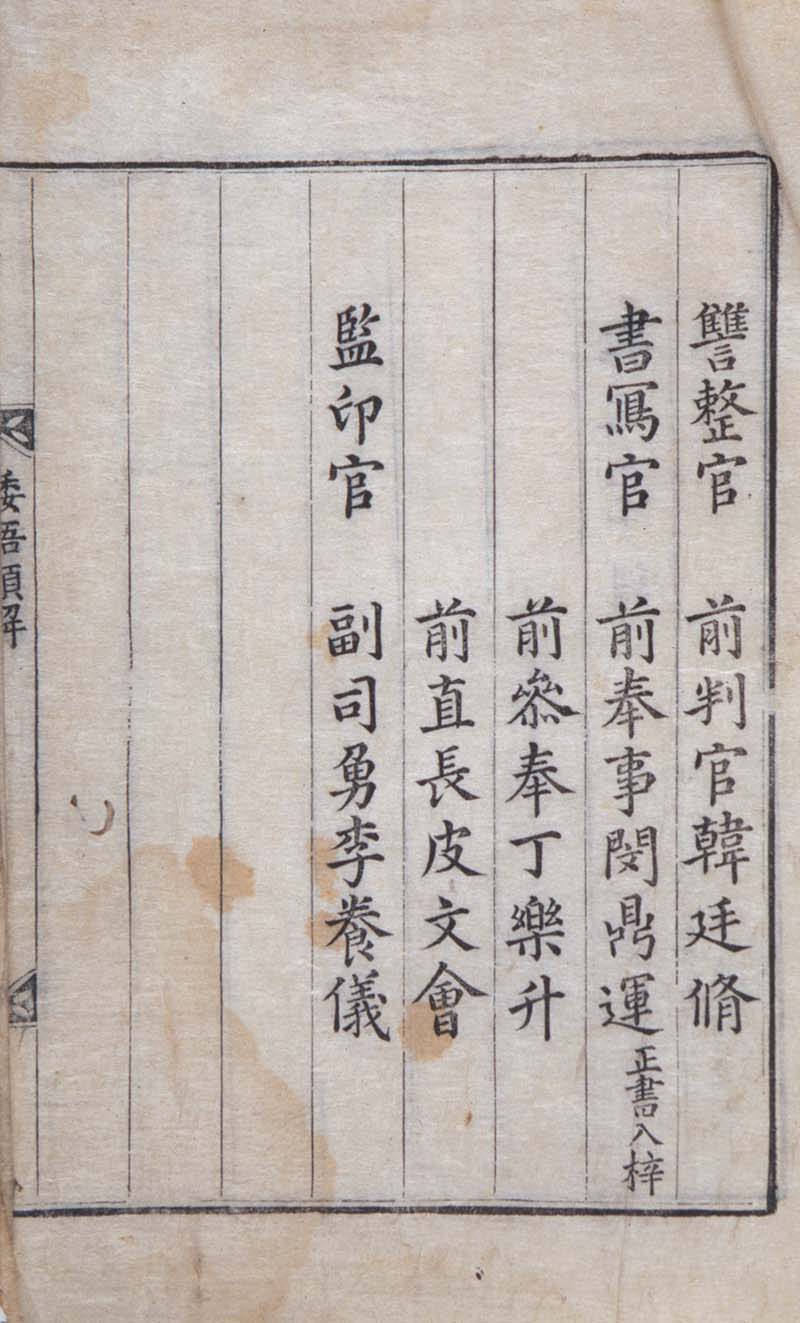 讐整官 前判官韓廷脩
書寫官 前奉事閔鼎運 正書入梓
前參奉丁樂升
前直長皮文會
監印官 副司勇李養儀
倭語類解